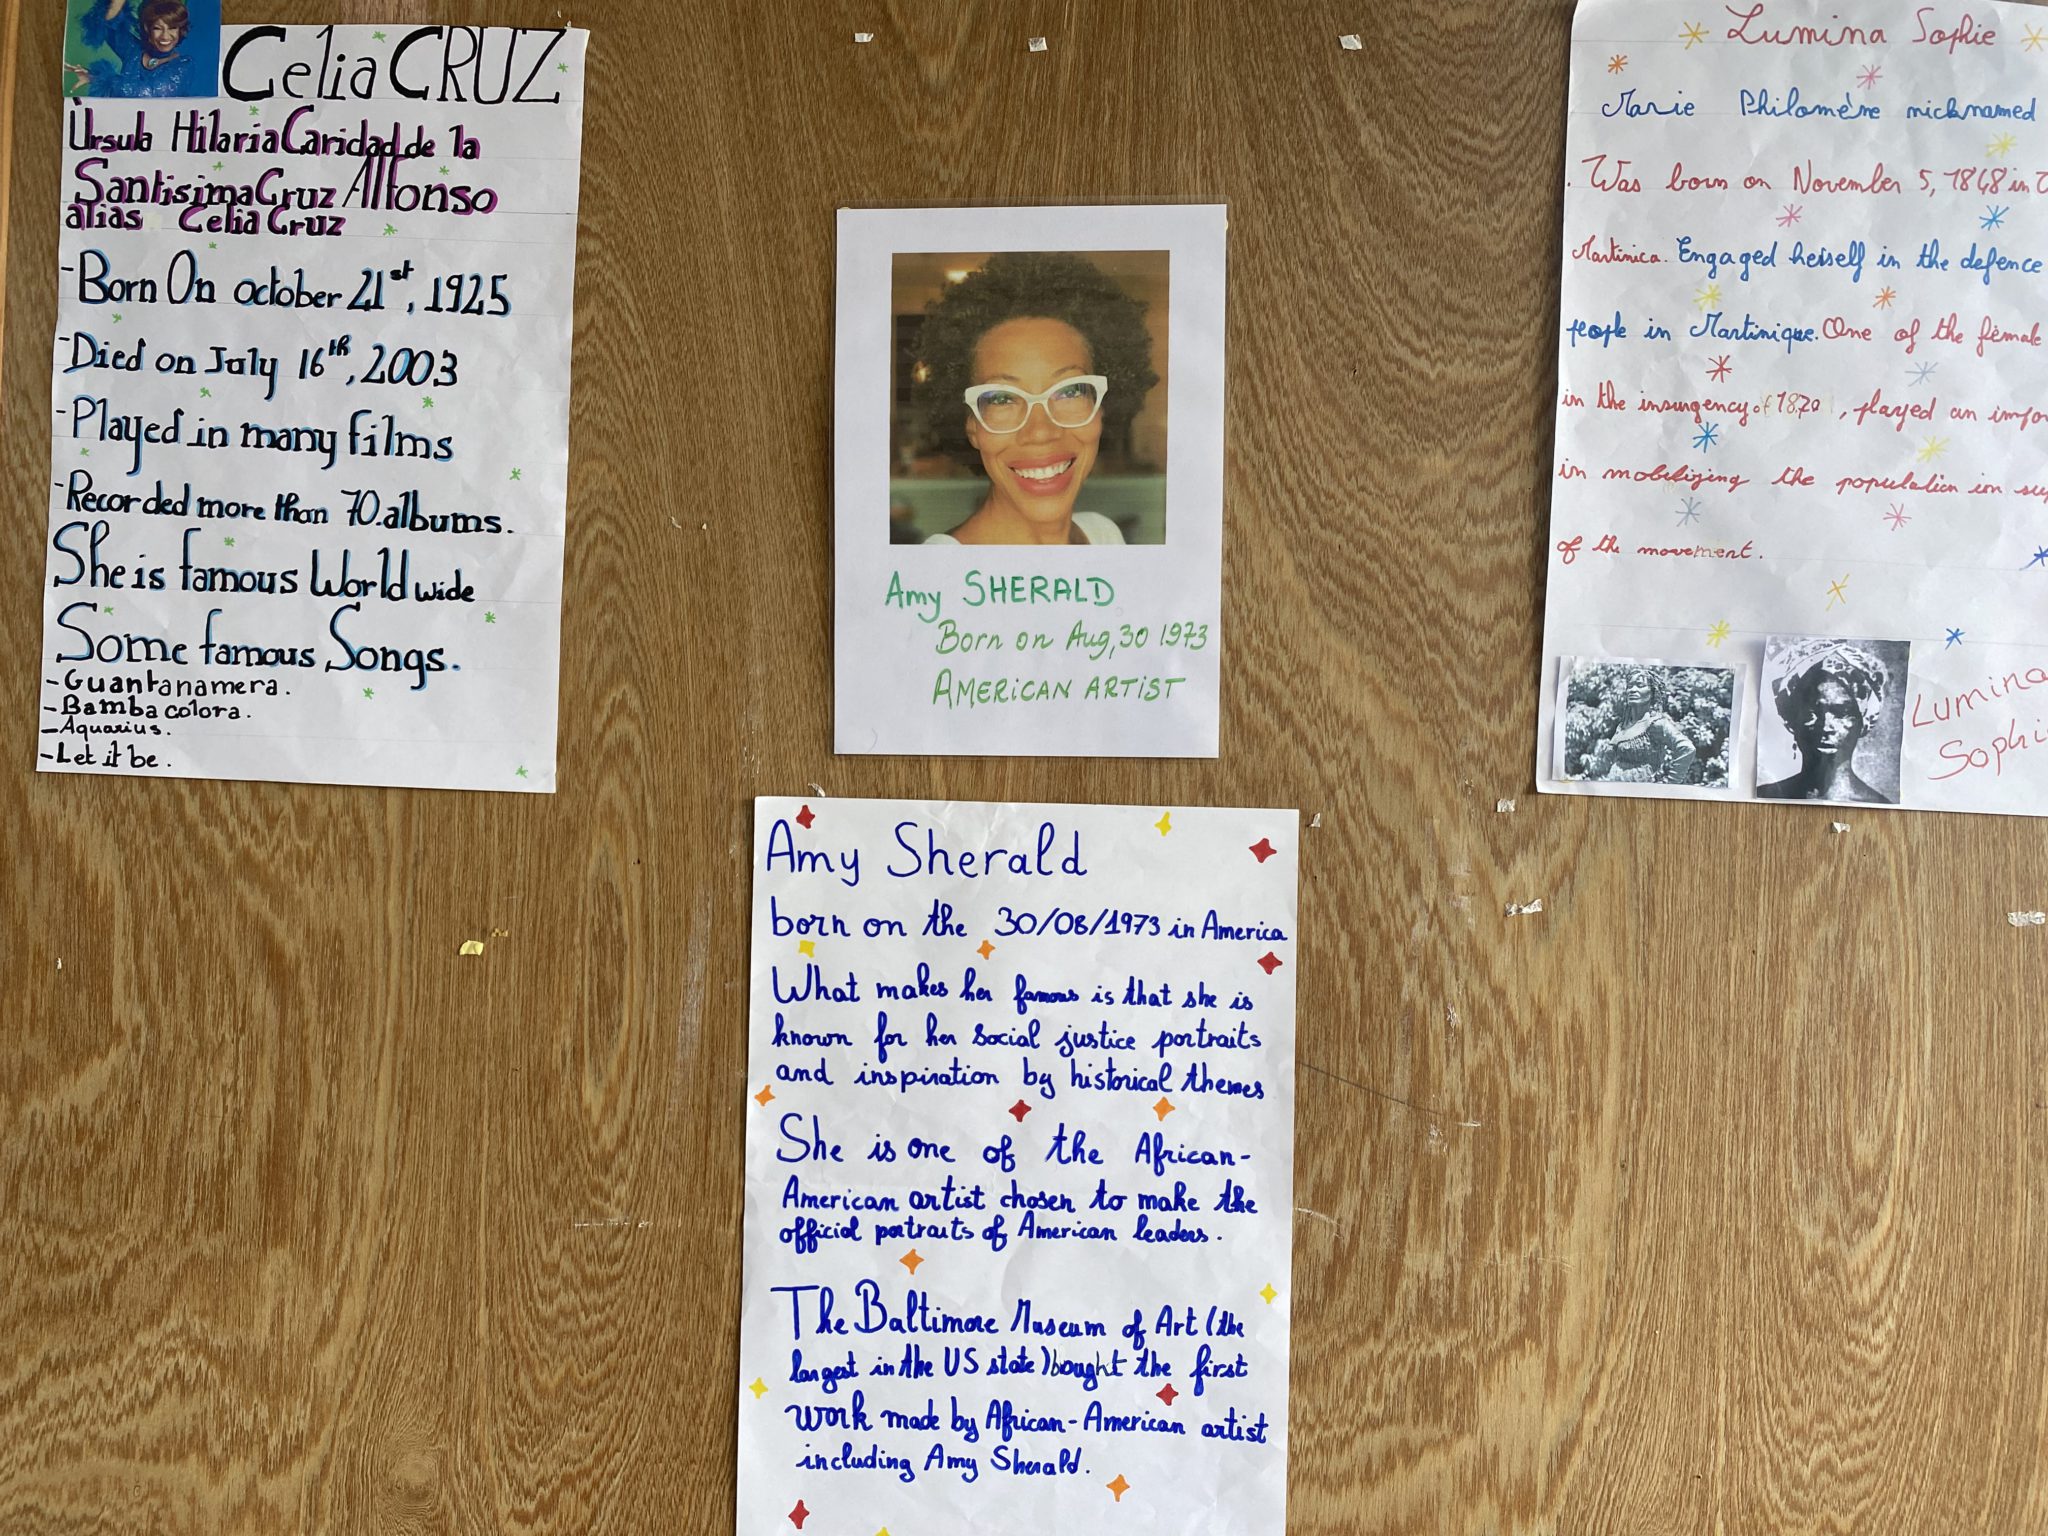 Celia CRUZ
Ùrsula Hilaria Caridad de la
Santisima Cruz Alfonso
alias Celia Cruz
-Born On october 21st, 1925
-Died on July 16th, 2003
-Played in many films
-Recorded more than 70.albums.
She is famous World wide
Some famous Songs.
-Guantanamera.
-Bamba colora.
-Aquarius.
-Let it be.
Amy SHERALD
Born on Aug,30 1973
AMERICAN ARTIST
Amy Sherald
born on the 30/08/1973 in America
What makes her famous is that she is
known for her social justice portraits
and inspiration by historical themes
She is one of the African-
American artist chosen to make the
official portraits of American leaders.
The Baltimore Museum of Art (the
largest in the US state) bought the first
work made by African-American artist
including Amy Sherald.
Lumina Sophie
Marie Philomène nicknamed
. Was born on November 5, 1848 in
Martinica. Engaged herself in the defence
people in Martinique. One of the female
in the insurgency of 1870, played an
in mobilizing the population in
of the movement.
Lumina